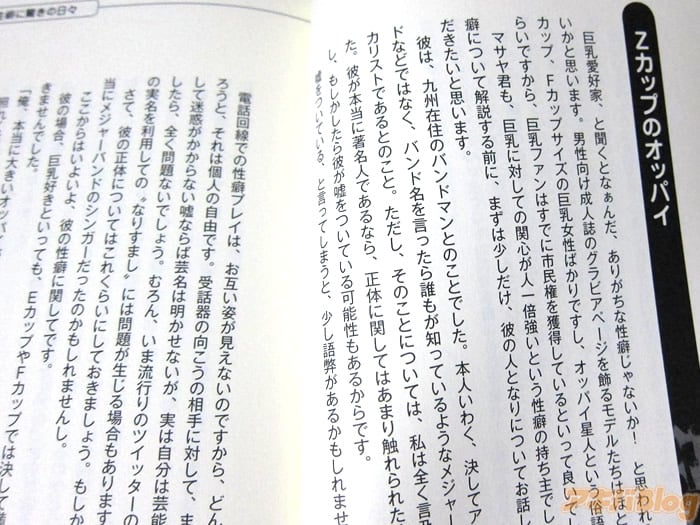 Zカップのオッパイ
巨乳愛好家、と聞くとなぁんだ、ありがちな性癖じゃないか! と思われ
いかと思います。男性向け成人誌のグラビアページを飾るモデルたちはほと
カップ、Fカップサイズの巨乳女性ばかりですし、オッパイ星人という俗語
らいですから、巨乳ファンはすでに市民権を獲得しているといって良い
マサヤ君も、巨乳に対しての関心が人一倍強いという性癖の持ち主でし
癖について解説する前に、まずは少しだけ、彼の人となりについてお話し
だきたいと思います。
彼は、九州在住のバンドマンとのことでした。本人いわく、決してア
ドなどではなく、バンド名を言ったら誰もが知っているようなメジャー
カリストであるとのこと。ただし、そのことについては、私は全く言及
た。彼が本当に著名人であるなら、正体に関してはあまり触れられた
し、もしかしたら彼が嘘をついている可能性もあるからです。
嘘をついている、と言ってしまうと、少し語弊があるかもしれませ
性癖に驚きの日々
電話回線での性癖プレイは、お互い姿が見えないのですから、どん
ろうと、それは個人の自由です。受話器の向こうの相手に対して、
して迷惑がかからない嘘ならば芸名は明かせないが、実は自分は芸能
したら、全く問題ないでしょう。むろん、いま流行りのツイッターの
の実名を利用しての〝なりすまし〟には問題が生じる場合もあります
さて、彼の正体についてはこれくらいにしておきましょう。もしか
当にメジャーバンドのシンガーだったのかもしれませんし。
ここからはいよいよ、彼の性癖に関してです。
彼の場合、巨乳好きといっても、EカップやFカップでは決して
きませんでした。
「俺、本当に大きいオッパイ
アキバBlog